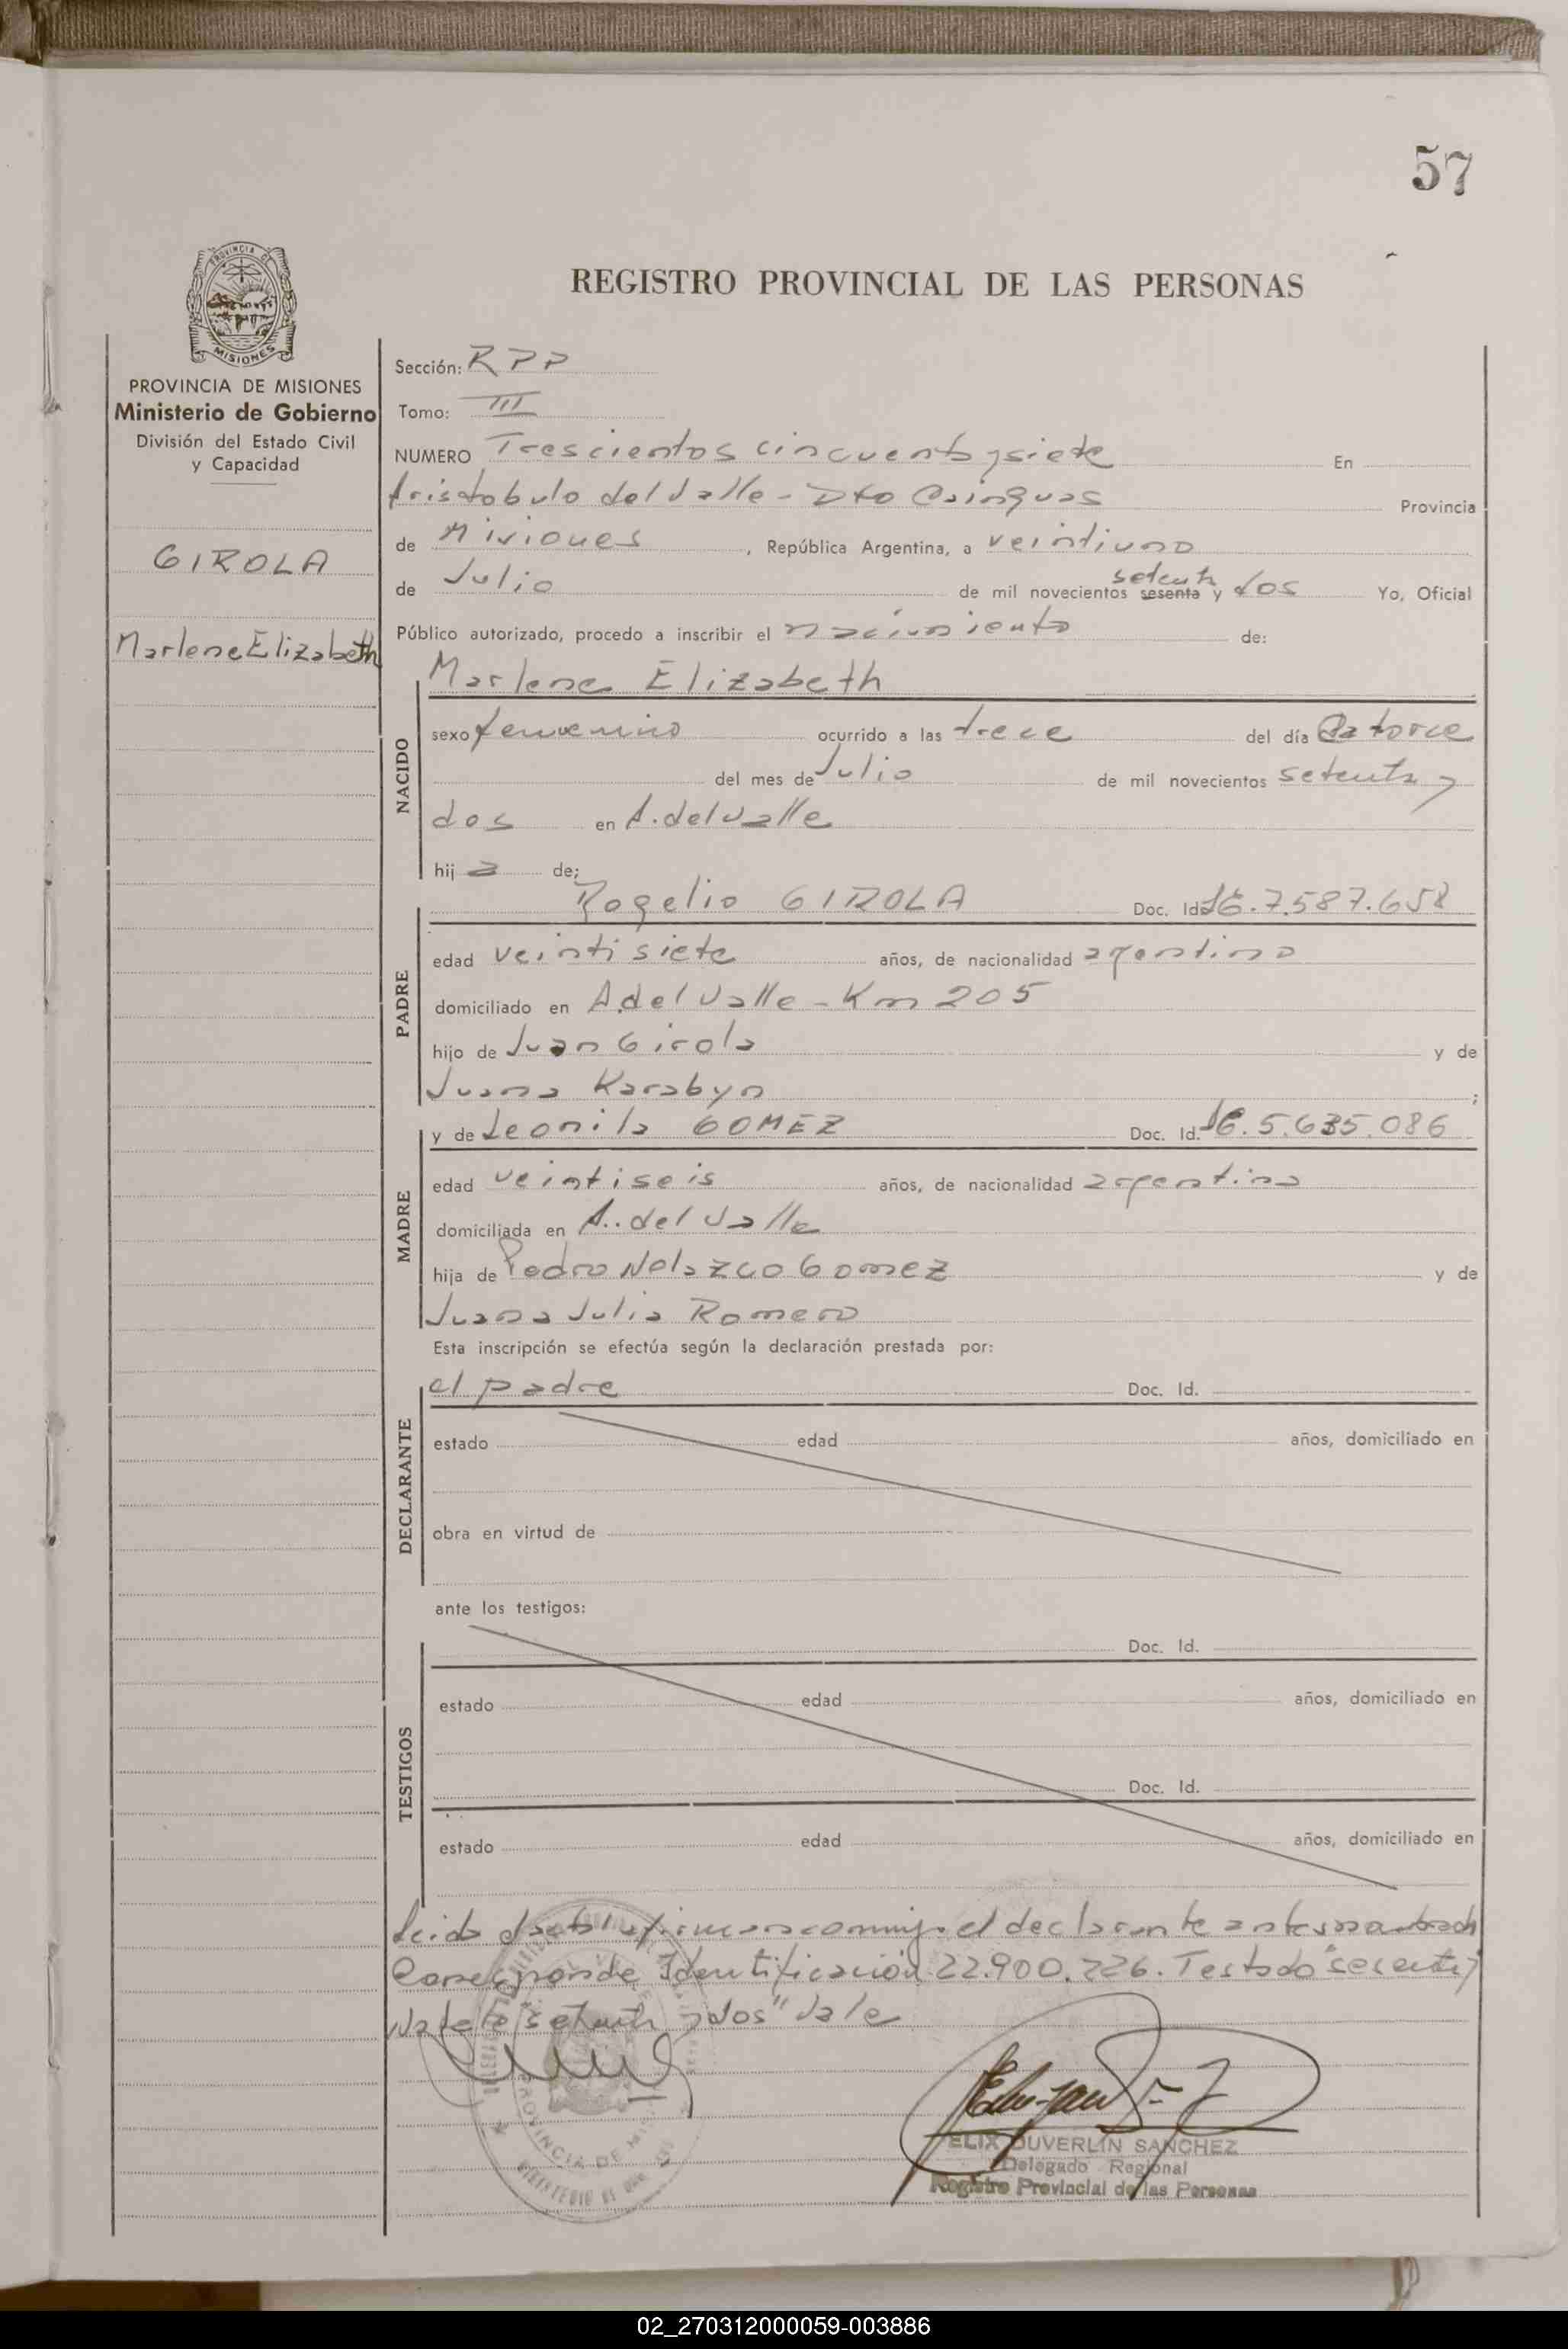 57
REGISTRO PROVINCIAL DE LAS PERSONAS
PROVINCIA DE
MISIONES
PROVINCIA DE MISIONES
Ministerio de Gobierno
División del Estado Civil
y Capacidad
GIROLA
Marlene Elizabeth
Sección: RPP
Tomo: III
NUMERO Trescientos cincuenta y siete En
Aristobulo del Valle - Dto Cainguas Provincia
de Misiones, República Argentina, a veintiuno
setenta
de Julio de mil novecientos sesenta y dos Yo, Oficial
Público autorizado, procedo a inscribir el nacimiento de:
Marlene Elizabeth
NACIDO
sexo femenino ocurrido a las trece del día Catorce
del mes de Julio de mil novecientos setenta y
dos en A. del Valle
hij a de;
Rogelio GIROLA Doc. Id. 7.587.658
PADRE
edad veintisiete años, de nacionalidad argentino
domiciliado en A. del Valle - Km 205
hijo de Juan Girola y de
Juana Karabyn ;
y de Leonila GOMEZ Doc. Id. 5.635.086
MADRE
edad veintiseis años, de nacionalidad argentina
domiciliada en A. del Valle
hija de Pedro Nolazco Gomez y de
Juana Julia Romero
Esta inscripción se efectúa según la declaración prestada por:
el padre Doc. Id.
DECLARANTE
estado edad años, domiciliado en
obra en virtud de
ante los testigos:
Doc. Id.
TESTIGOS
estado edad años, domiciliado en
Doc. Id.
estado edad años, domiciliado en
Leida el acta firman conmigo el declarante
Corresponde Identificación 22.900.226. Testado "sesenta y
setenta y dos" Vale
PROVINCIA DE MIS
ELIX DUVERLIN SANCHEZ
Delegado Regional
Registro Provincial de las Personas
02_270312000059-003886